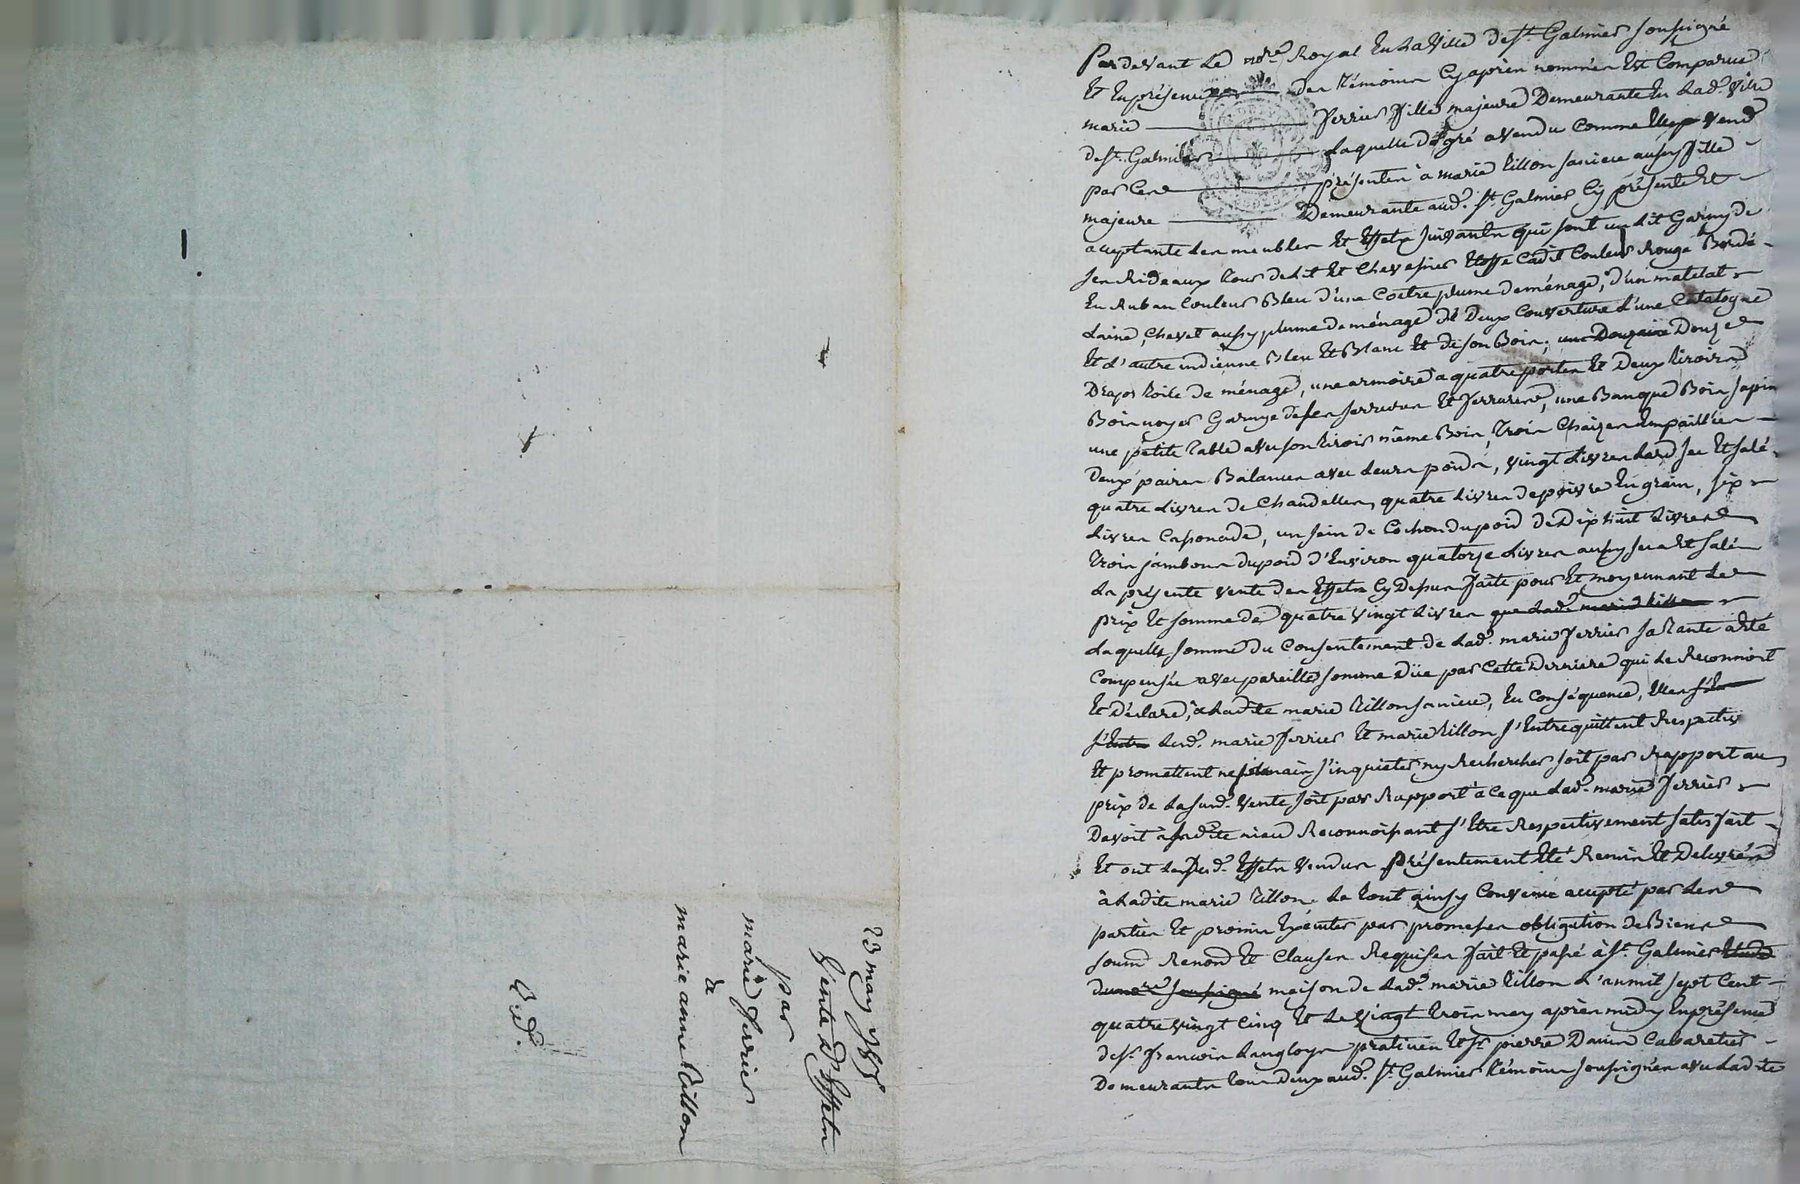 Par devant Le no.re Royal En La Ville de St. Galmier soussigné
Et En présence des témoins Cy après nommés Est Comparue
marie ferrier fille majeure Demeurante En Lad.e Ville
de St. Galmier Laquelle de gré a vendu comme Elle vend
par Ces présentes à marie tillon sa niece aussy fille
majeure Demeurante aud. St. Galmier Cy présente Et
acceptante Les meubles Et Effets suivants qui sont un Lit Garny de
ses Rideaux tour de Lit Et Chevesier Etoffe Cadit Couleur Rouge Bordé
En Ruban Couleur Bleu d'une Coetre plume de ménage, d'un matelat
Laine, Chevet aussy plume de ménage de Deux Couverture L'une Catalogne
Et L'autre indienne Bleu Et Blanc Et de son Bois, une Douzaine Douze
Draps toile de ménage, une armoire a quatre portes Et Deux tiroirs
Bois noyer Garnye de ses serrures Et ferrures, une Banque Bois sapin
une petite table avec son tiroir même Bois, trois Chaizes Empaillées
Deux paires Balances avec Leurs poids, vingt Livres Lard sec Et salé
quatre Livres de Chandelles, quatre Livres de poivre En grain, six
Livres Casponade, un sein de Cochon du poid de Dix huit Livres
trois jambons du poid d'Environ quatorze Livres aussy secs Et salés
La présente vente des Effets Cy Dessus faite pour Et moyennant Le
prix Et somme de quatre vingt Livres que Lad.e marie tillon
Laquelle somme du Consentement de Lad.e marie ferrier sa tante a Eté
Compensée avec pareille somme Düe par Cette Derniere qui Le Reconnoit
Et Déclare, à Ladite marie tillon sa niece, En Conséquence, Elles se
s'Entre Lesd. marie ferrier Et marie tillon s'Entrequittent Respectiv
Et promettent ne jamais s'inquieter ny Rechercher soit par Rapport au
prix de La susd.e vente, soit par Rapport à ce que Lad.e marie ferrier
Devoit à sadite niece Reconnoissant s'Etre Respectivement satisfait
Et ont Les susd. Effets vendus présentement Eté Remis Et Delivrés
à Ladite marie tillon. Le tout ainsy Convenu accepté par Les
parties Et promis Exécuter par promesses obligation de Biens
soumis Renond Et Clauses Requises fait Et passé à St. Galmier Etude
du no.re soussigné maison de Lad.e marie tillon L'an mil sept Cent
quatre vingt Cinq Et Le Vingt trois may après midy En présence
de Sr. francois Langloys praticien Et Sr. pierre Cabaretier
Demeurants tous Deux aud. St. Galmier témoins soussignés avec Ladite
23 may 1785
Vente D'Effets
par
marie ferrier
à
marie anne tillon